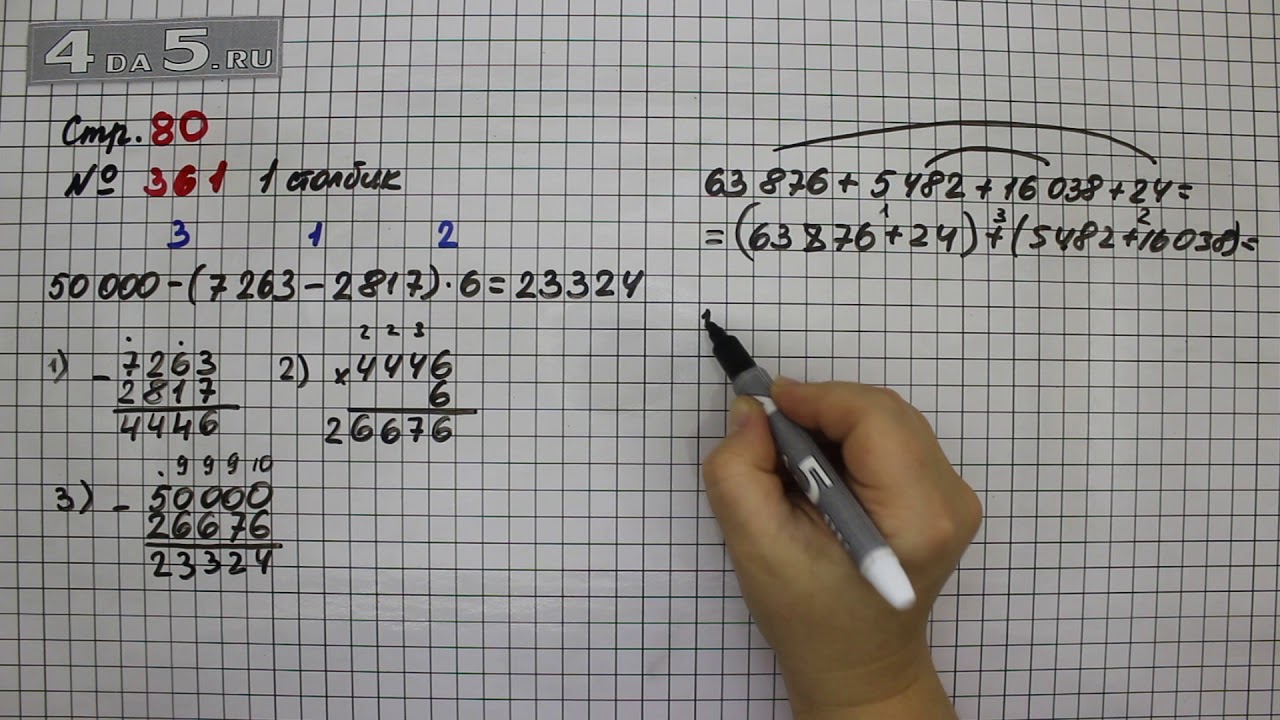 4DA5.RU
Стр. 80
№ 361 1 столбик
3 1 2
50 000 - (7 263 - 2 817) · 6 = 23 324
2 2 3
1) - 7263 2) × 4446
2817 6
4446 26676
9 9 9 10
3) - 50000
26676
23324
63 876 + 5 482 + 16 038 + 24 =
1 3 2
= (63 876 + 24) + (5 482 + 16 038) =
1
5